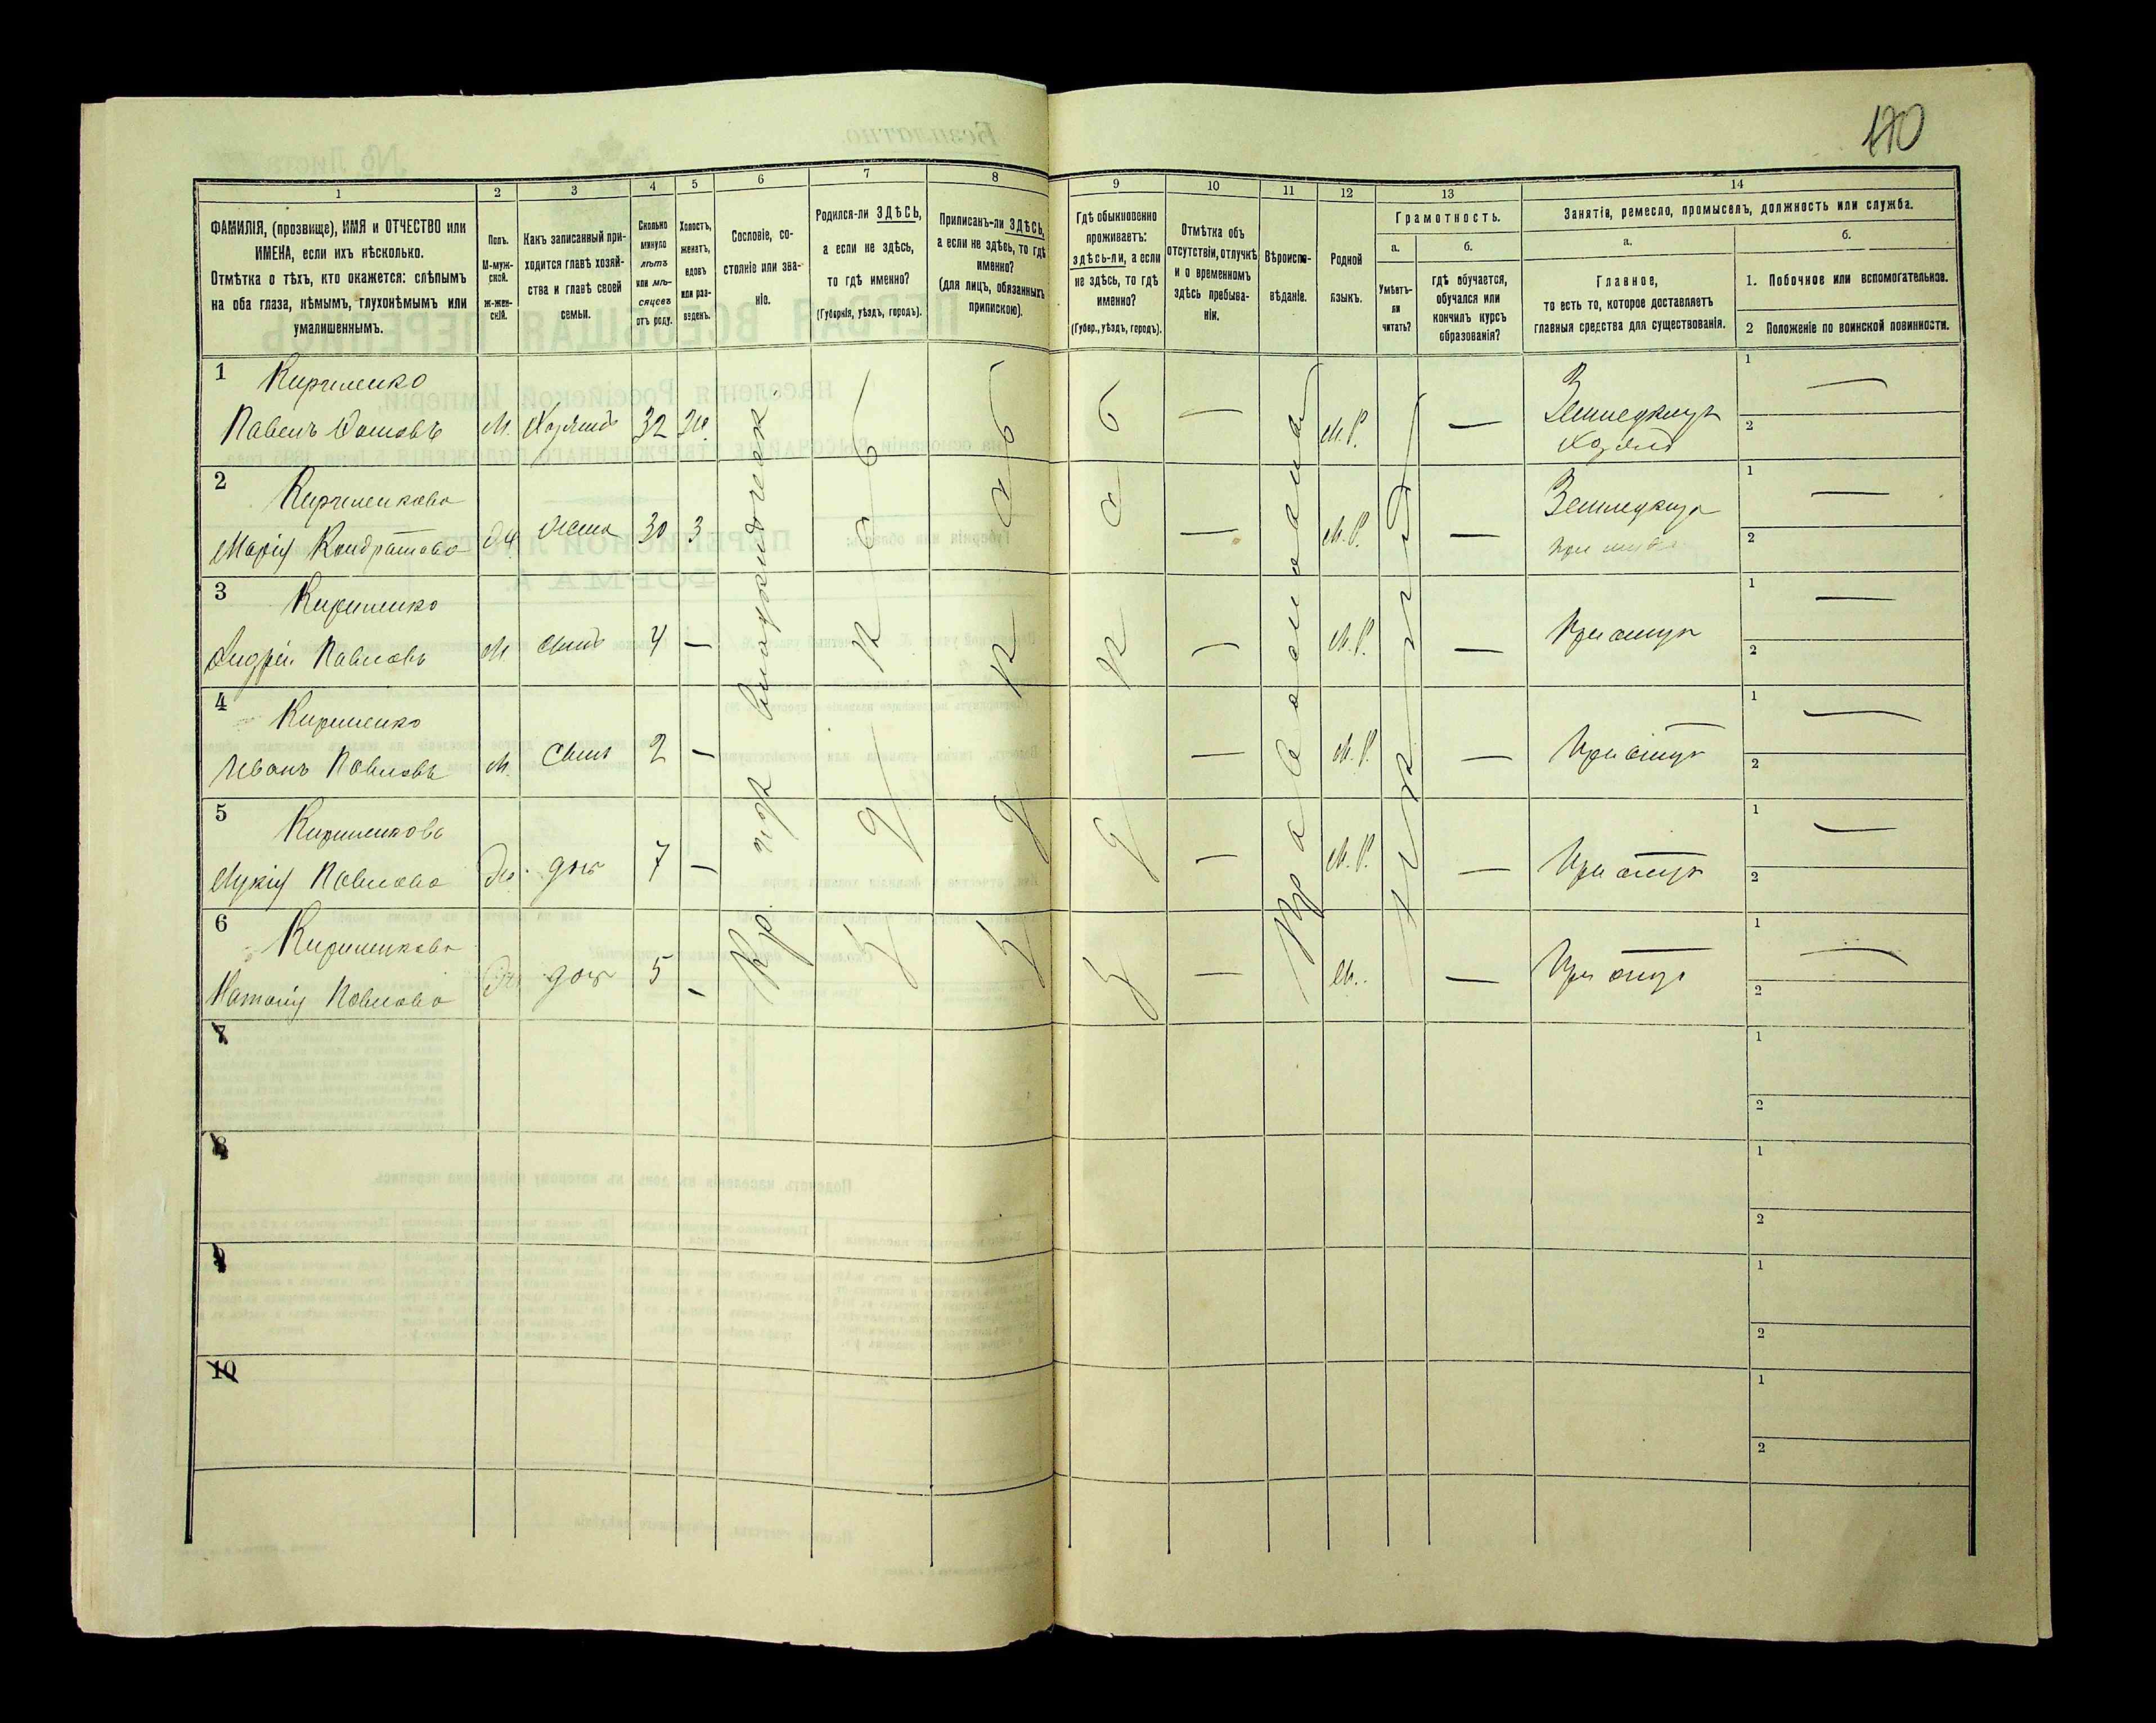 170
1 2 3 4 5 6 7 8 9 10 11 12 13 14
ФАМИЛІЯ, (прозвище), ИМЯ и ОТЧЕСТВО или
ИМЕНА, если ихъ нѣсколько.
Отмѣтка о тѣхъ, кто окажется: слѣпымъ
на оба глаза, нѣмымъ, глухонѣмымъ или
умалишеннымъ.
Полъ.
М-муж-
ской.
Ж-жен-
скій.
Какъ записанный при-
ходится главѣ хозяй-
ства и главѣ своей
семьи.
Сколько
минуло
лѣтъ
или мѣ-
сяцевъ
отъ роду.
Холостъ,
женатъ,
вдовъ
или раз-
веденъ.
Сословіе, со-
стояніе или зва-
ніе.
Родился-ли ЗДѢСЬ,
а если не здѣсь,
то гдѣ именно?
(Губернія, уѣздъ, городъ).
Приписанъ-ли ЗДѢСЬ,
а если не здѣсь, то гдѣ
именно?
(для лицъ, обязанныхъ
припискою).
Гдѣ обыкновенно
проживаетъ:
здѣсь-ли, а если
не здѣсь, то гдѣ
именно?
(Губер., уѣздъ, городъ).
Отмѣтка объ
отсутствіи, отлучкѣ
и о временномъ
здѣсь пребыва-
ніи.
Вѣроиспо-
вѣданіе.
Родной
языкъ.
Грамотность.
а.
Умѣетъ-
ли
читать?
б.
гдѣ обучается,
обучался или
кончилъ курсъ
образованія?
Занятіе, ремесло, промыселъ, должность или служба.
а.
Главное,
то есть то, которое доставляетъ
главныя средства для существованія.
б.
1. Побочное или вспомогательное.
2 Положеніе по воинской повинности.
1 Кириленко
Павелъ М. Хозяинъ 32 Ж. — М.Р. —
Земледѣлецъ
Хозяинъ
1 —
2
2 Кириленкова
Марія Кондратова Ж жена 30 З — М.Р. —
Земледѣлец
при мужѣ
1 —
2
3 Кириленко
Андрей Павловъ М. сынъ 4 — — М.Р. — При отцѣ
1 —
2
4 Кириленко
Иванъ Павловъ М. сынъ 2 — — М.Р. — При отцѣ
1 —
2
5 Кириленкова
Лукія Павлова Ж. доч 7 — — М.Р. — При отцѣ
1 —
2
6 Кириленкова
Наталія Павлова Ж доч 5 — — М. — При отцѣ
1 —
2
Кр.
Здѣсь
Здѣсь
Здѣсь
Православная
7
1
2
8
1
2
9
1
2
10
1
2